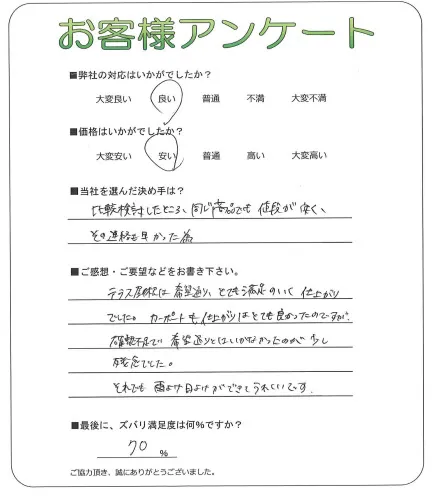 お客様アンケート
■弊社の対応はいかがでしたか?
大変良い 良い 普通 不満 大変不満
■価格はいかがでしたか?
大変安い 安い 普通 高い 大変高い
■当社を選んだ決め手は?
比較検討したところ、同じ商品でも値段が安く、
その連絡も早かった為
■ご感想・ご要望などをお書き下さい。
テラス屋根は希望通り、とても満足のいく仕上がり
でした。カーポートも仕上がりはとても良かったのですが、
確認不足で希望通りとはいかなかったのが少し
残念でした。
それでも雨よけ日よけができてうれしいです。
■最後に、ズバリ満足度は何%ですか?
70 %
ご協力頂き、誠にありがとうございました。